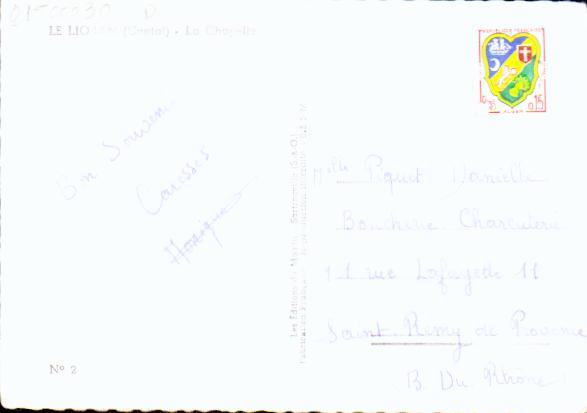 01500030 D
LE LIORAN (Cantal) - La Chapelle
Bon Souvenir
Caresses
Monique
Nº 2
Les Éditions du Marin - Sartrouville (S.-&-O.)
Fabrication Française - Reproduction interdite
REPUBLIQUE FRANÇAISE
0,15
ALGER
Mlle Piquet Danielle
Boucherie Charcuterie
11 rue Lafayette 11
Saint-Remy de Provence
B. Du Rhône